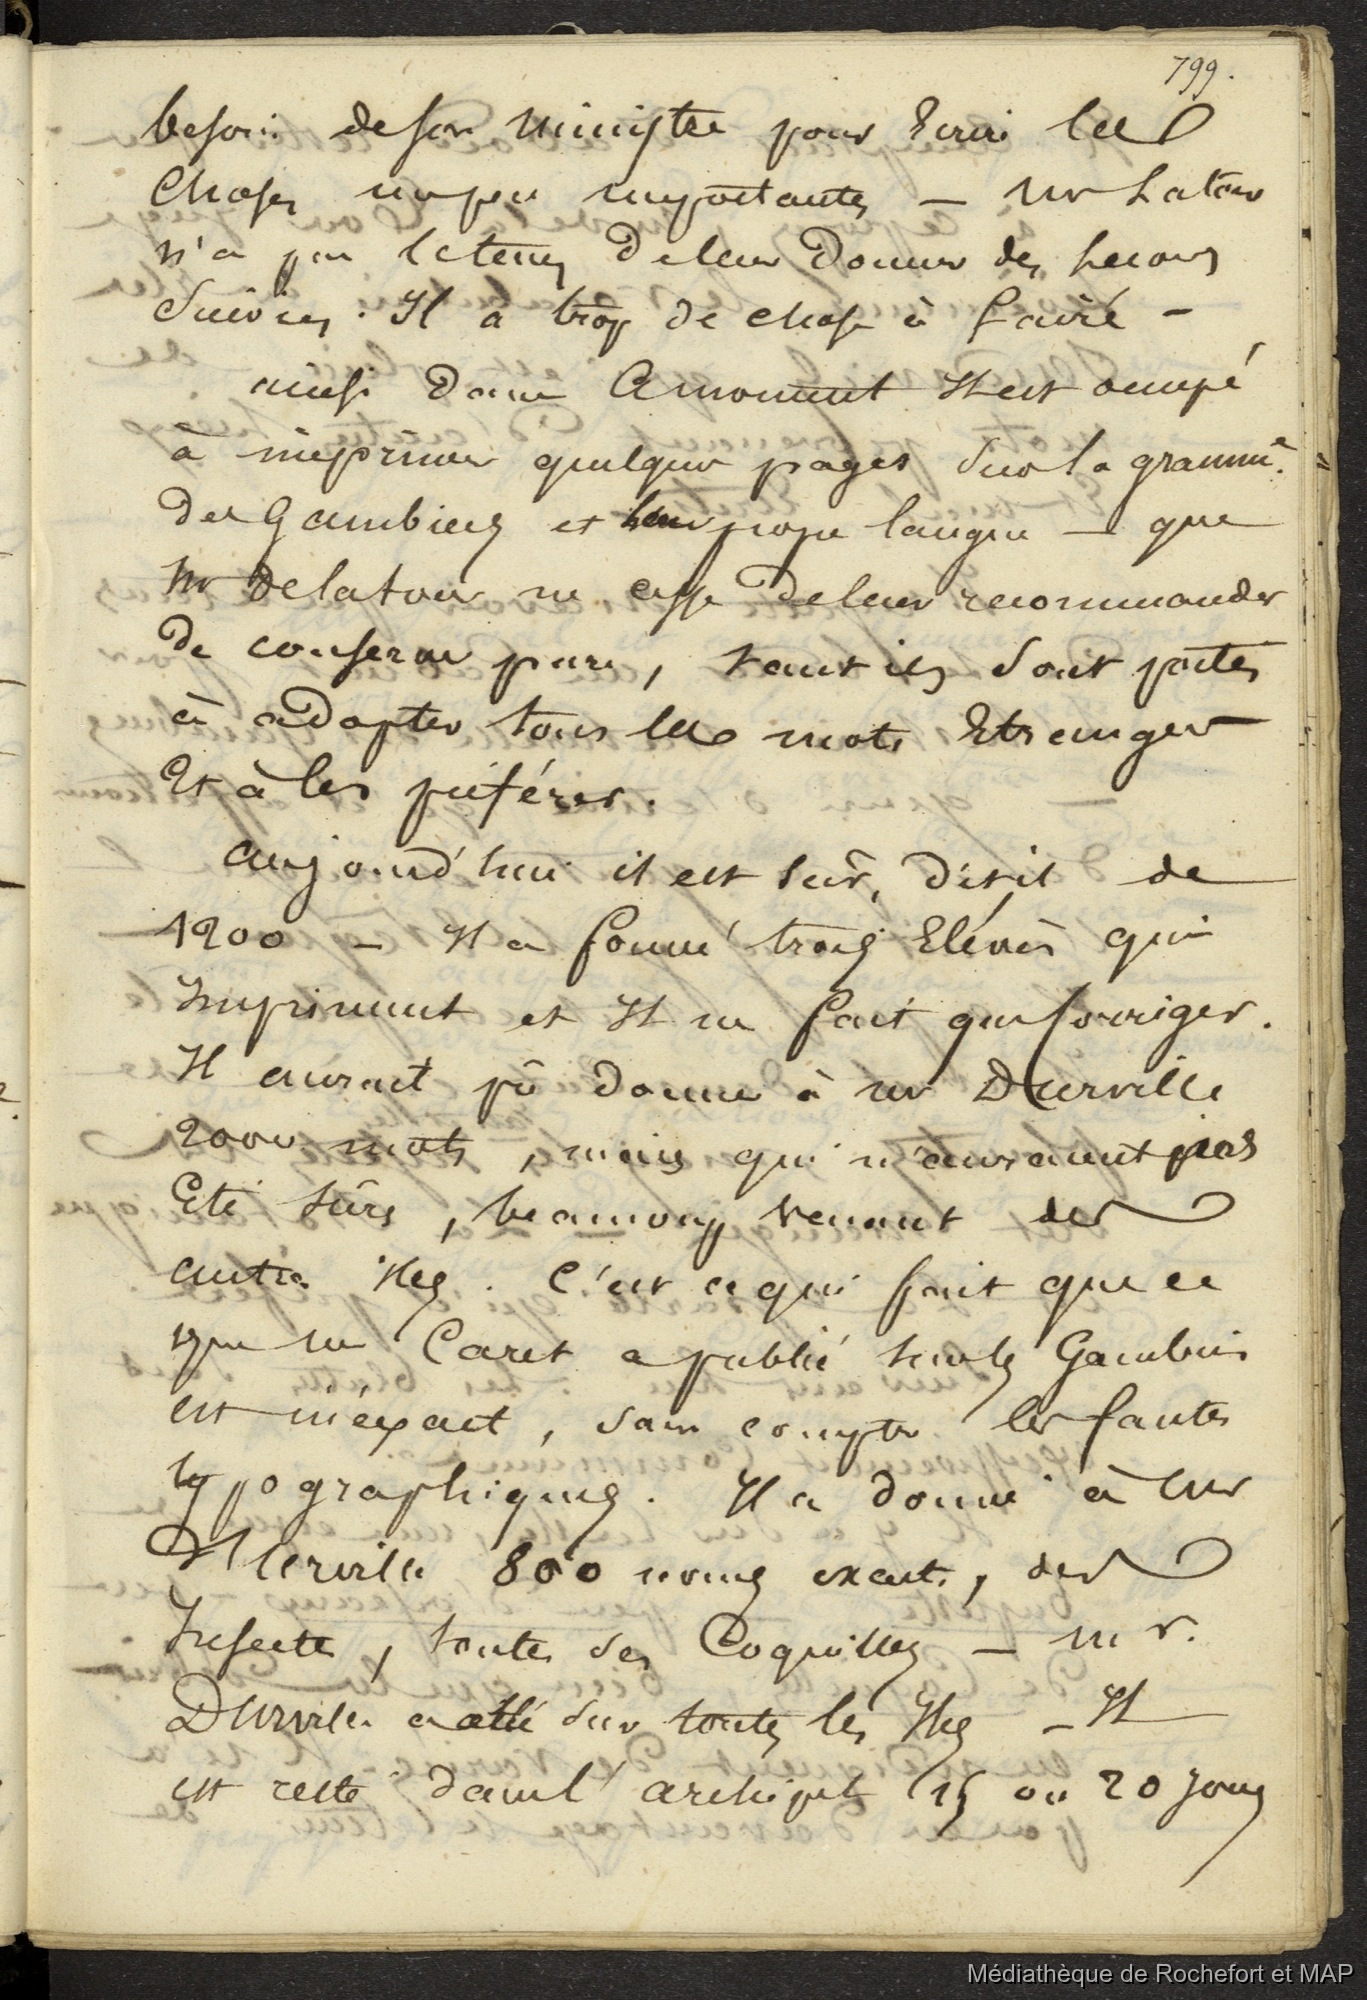 799.
besoin de son ministre pour Ecrire les
choses un peu importantes — Mr Latour
n'a pas le tems de leur donner des lecons
Suivies. Il a trop de chose à faire —
ainsi dans ce moment Il est occupé
à imprimer quelques pages sur la gramme.
des Gambiens et leur propre langue — que
Mr de latour ne cesse de leur recommander
de conserver pure, tant ils sont portés
à adopter tous les mots Etrangers
Et à les préférer.
aujourd'hui il est sûr, dit il de
1200 — Il a formé trois Elèves qui
Impriment et Il ne fait que corriger.
Il aurait pû donner à Mr Durville
2000 mots, mais qui n'auraient pas
Eté sûrs, beaucoup venant des
autres Iles. C'est ce qui fait que ce
que Mr Caret a publié sur les Gambier
est inéxact, sans compter les fautes
typographiques. Il a donné à Mr
Durville 800 noms exacts, des
Insectes, toutes des Coquilles — mr.
Durville a été sur toutes les Iles — Il
est resté dans l'archipel 15 ou 20 Jours
Médiathèque de Rochefort et MAP